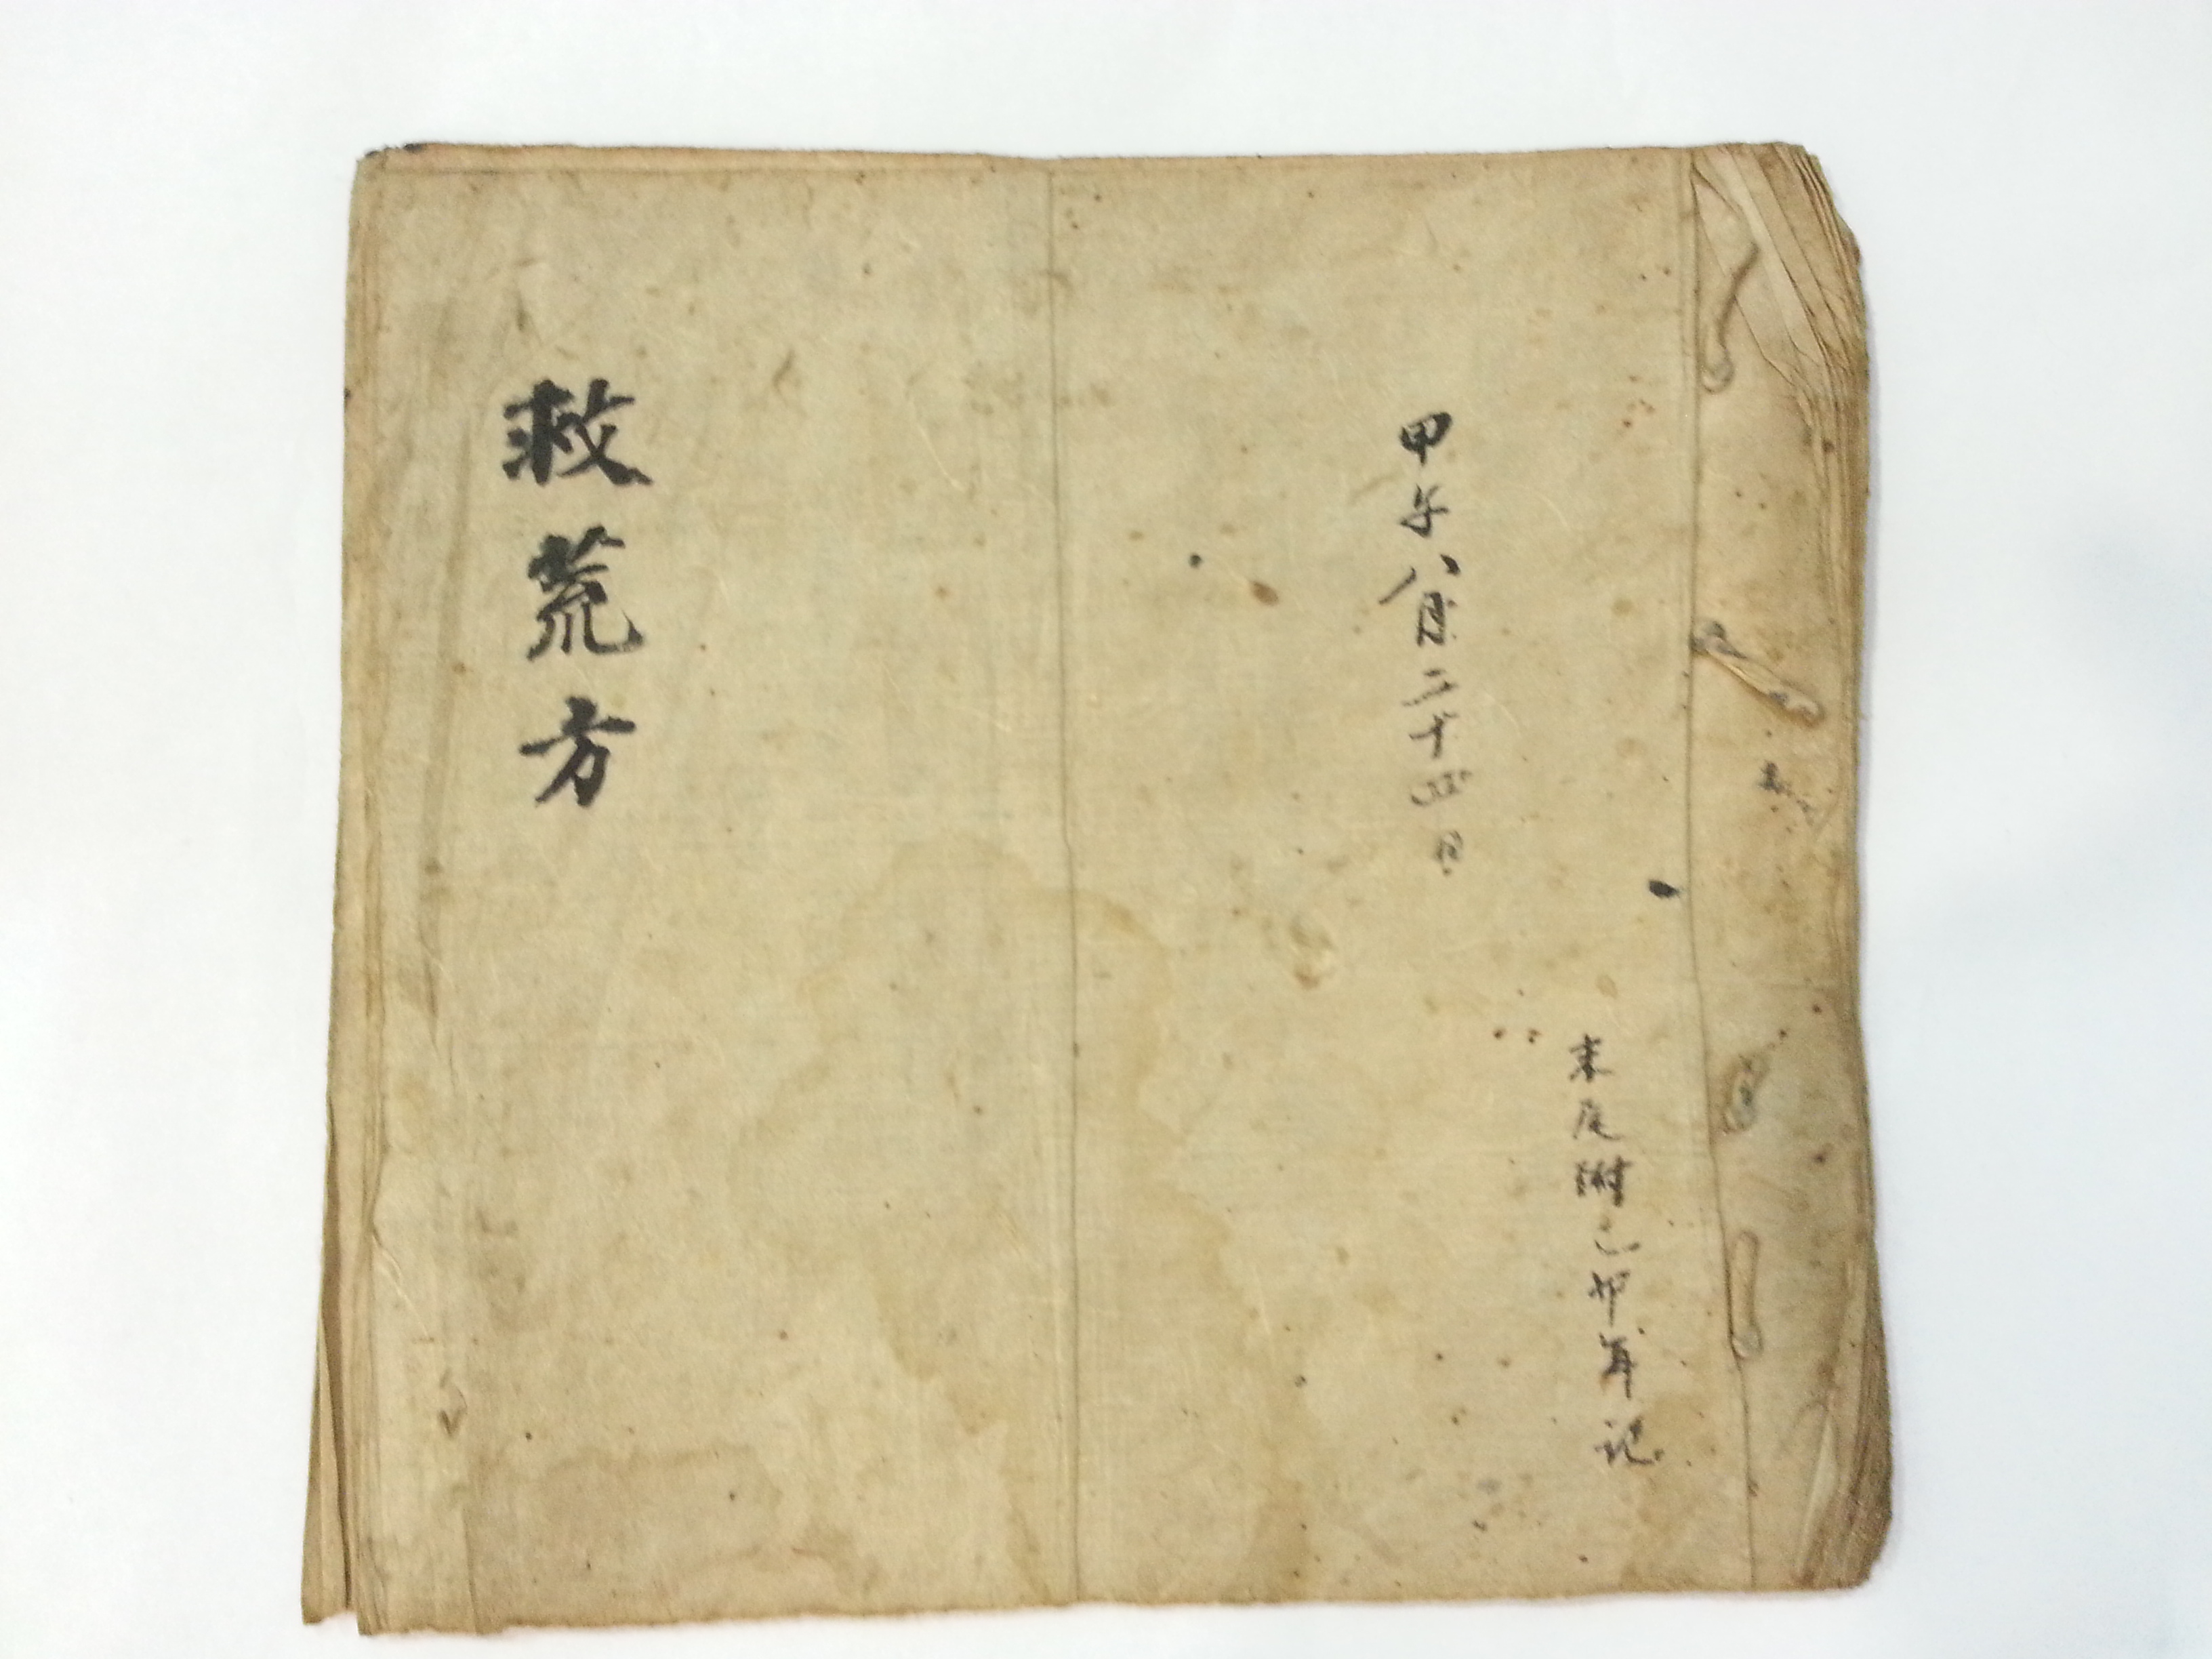 末尾附己卯年記
甲午八月二十四日
救荒方